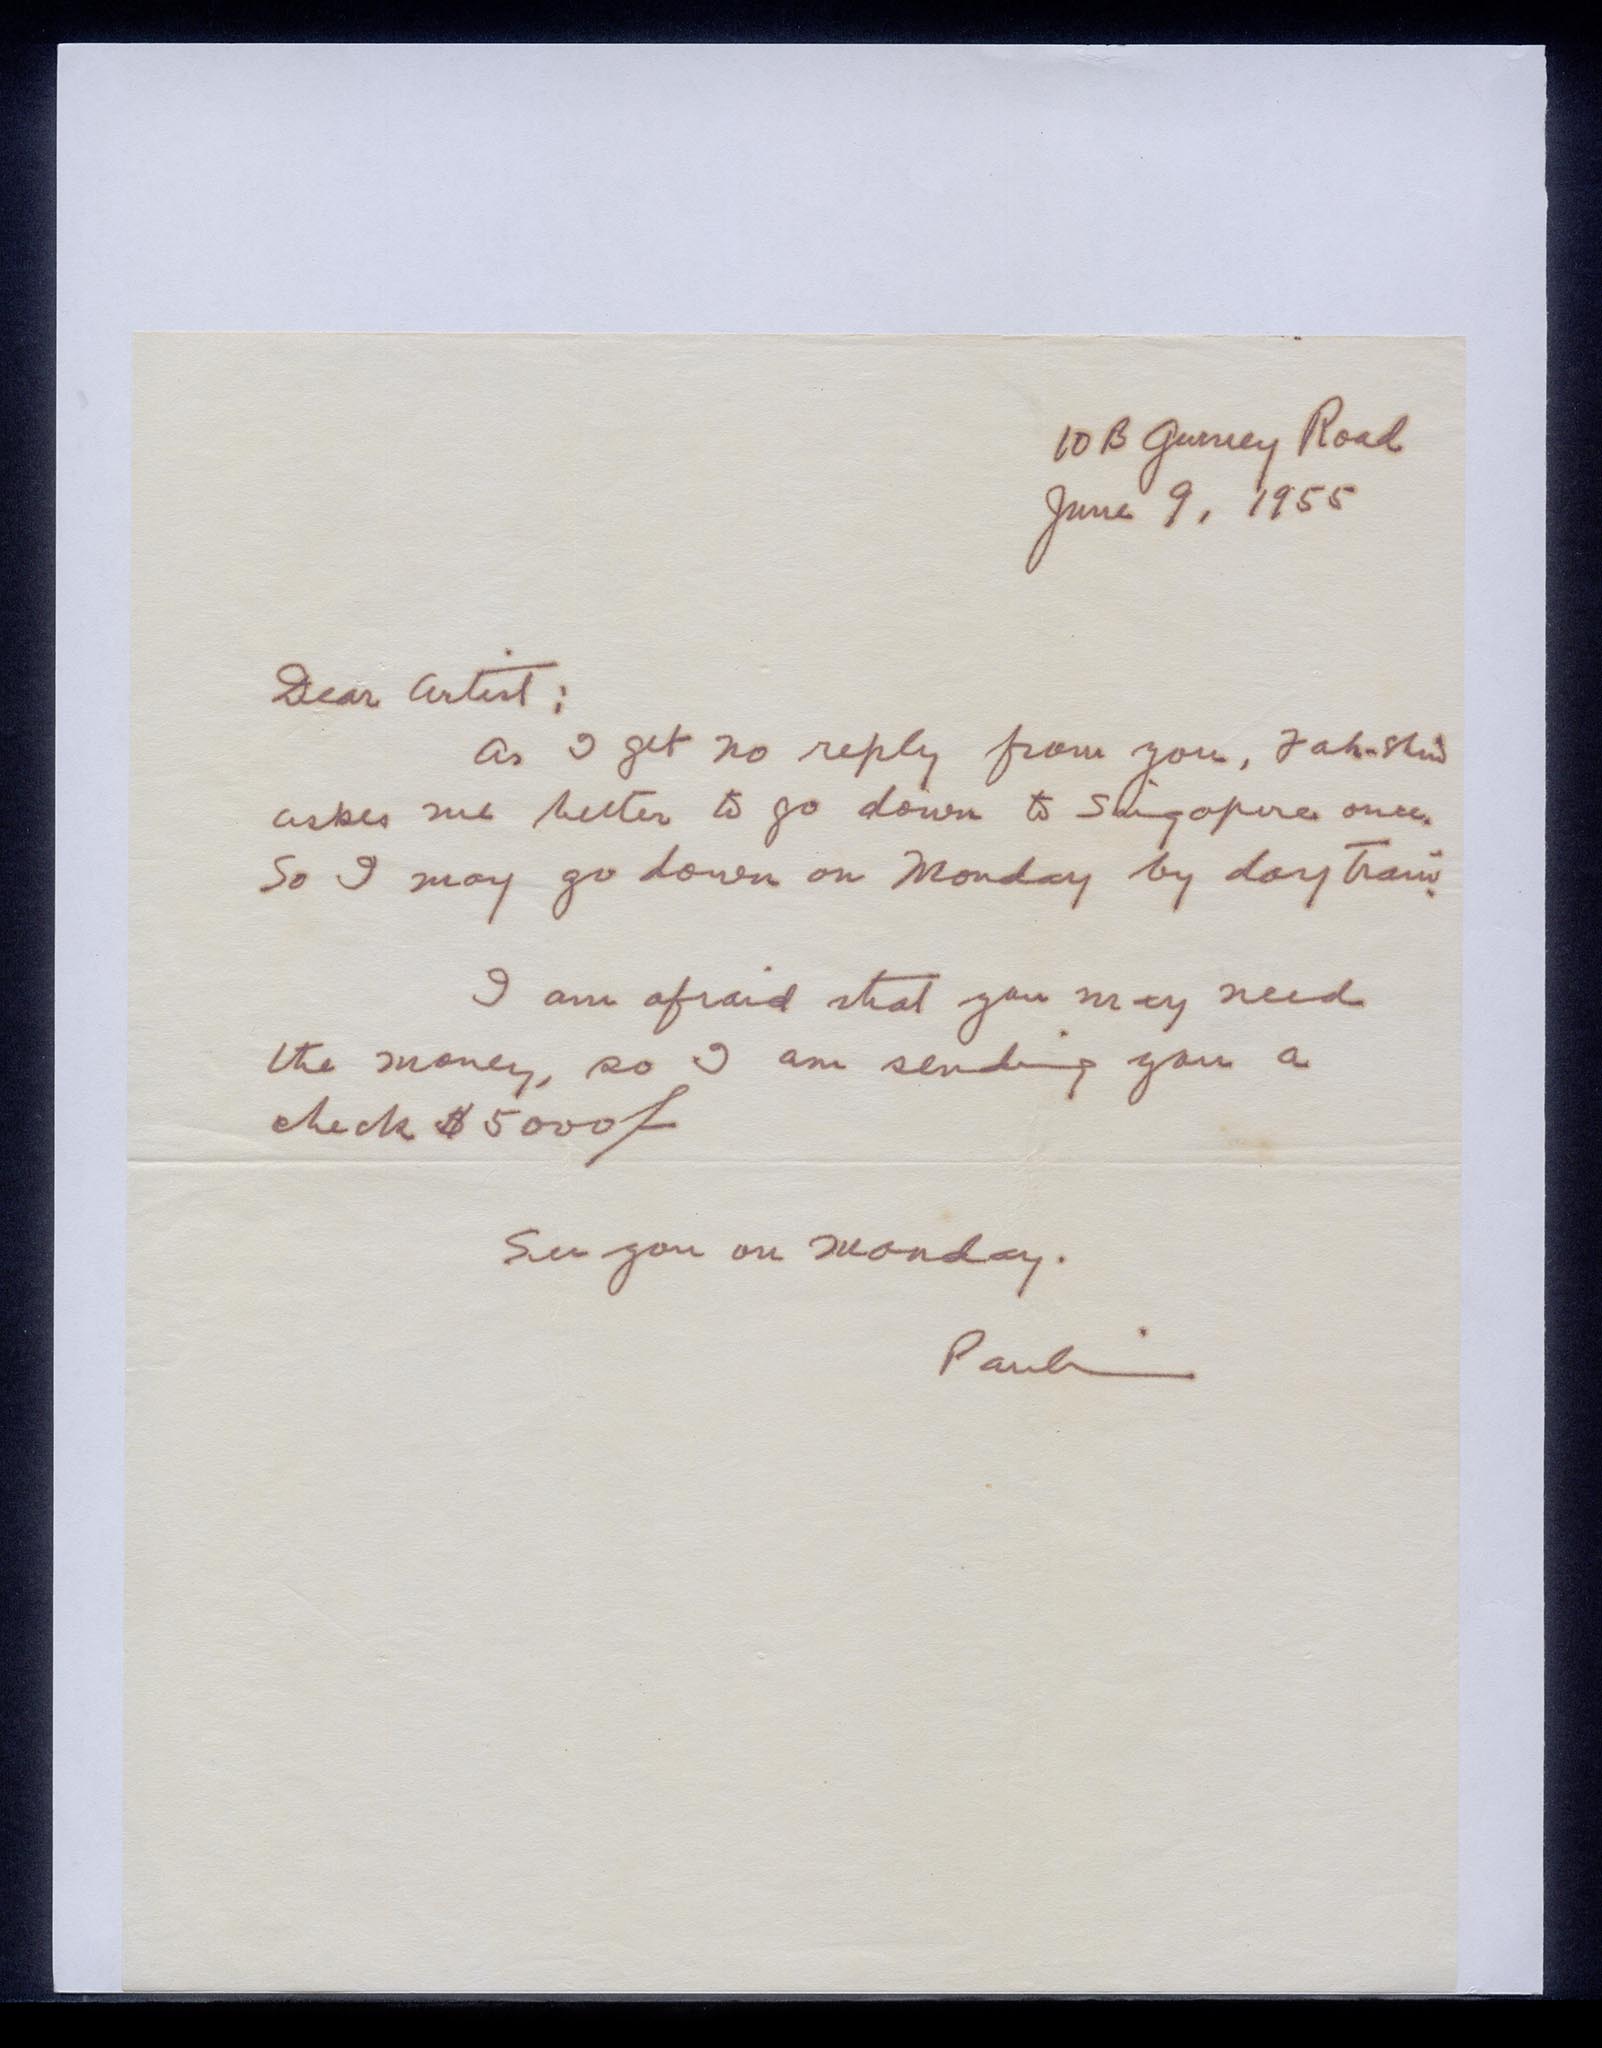 10 B Gurney Road
June 9, 1955
Dear Artist:
As I get no reply from you,
askes me better to go down to Singapore once.
So I may go down on Monday by day train.
I am afraid that you may need
the money, so I am sending you a
check $5000/-
See you on Monday.